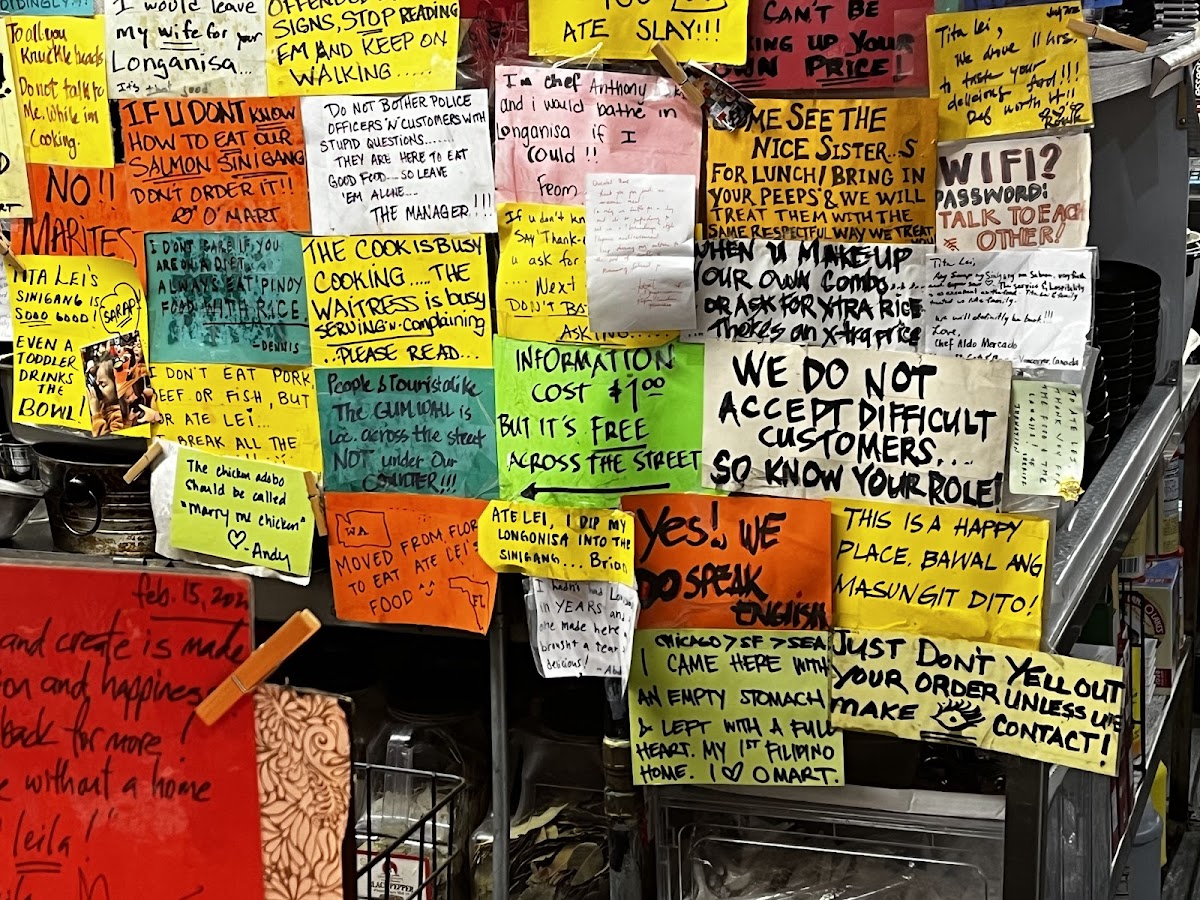 To all you
Knuckle heads.
Do not talk to
Me. While im
Cooking.
I would leave
my wife for your
Longanisa...
It's that good
SIGNS, STOP READING
'EM AND KEEP ON
WALKING.....
ATE SLAY!!!
CAN'T BE
UP YOUR
OWN PRICE!
Tita Lei,
We drove 11 hrs.
to taste your
delicious food!!!
Def worth it!!
IF U DON'T KNOW
HOW TO EAT OUR
SALMON SINIGANG
DON'T ORDER IT!!
O' MART
DO NOT BOTHER POLICE
OFFICERS 'N' CUSTOMERS WITH
STUPID QUESTIONS.......
THEY ARE HERE TO EAT
GOOD FOOD... SO LEAVE
'EM ALONE....
THE MANAGER!!!
I'm chef Anthony
and i would bathe in
longanisa if I
could!!
From
COME SEE THE
NICE SISTER..S
FOR LUNCH! BRING IN
YOUR PEEPS & WE WILL
TREAT THEM WITH THE
SAME RESPECTFUL WAY WE TREAT
WIFI?
PASSWORD:
TALK TO EACH
OTHER!
NO!!
MARITES
I DON'T CARE IF YOU
ARE ON A DIET
ALWAYS EAT PINOY
FOOD WITH RICE.
- DENNIS
THE COOK IS BUSY
COOKING.....THE
WAITRESS is busy
SERVING-N-COMPLAINING
...PLEASE READ...
If u don't
SAY "Thank-
u ask for
... Next
DON'T
ASKING....
WHEN U MAKE-UP
YOUR OWN Combo....
OR ASK FOR XTRA RICE
THERES AN X-tra price
Tita Lei,
We will definitely be back!!!
Love,
Chef Aldo Mercado
Vancouver, Canada
TITA LEI'S
SINIGANG IS
SOOO GOOD!
SARAP!
EVEN A
TODDLER
DRINKS
THE
BOWL!
I DON'T EAT PORK,
BEEF OR FISH, BUT
FOR ATE LEI...
BREAK ALL THE
People & Tourist alike
The GUM WALL is
Loc. across the street
NOT under Our
COUNTER!!!
INFORMATION
COST $1.00
BUT IT'S FREE
ACROSS THE STREET
WE DO NOT
ACCEPT DIFFICULT
CUSTOMERS...
SO KNOW YOUR ROLE!
The chicken adobo
should be called
"marry me chicken"
♡ -Andy
WA
MOVED FROM FLOR
TO EAT ATE LEI'S
FOOD
FL
ATE LEI, I DIP MY
LONGONISA INTO THE
SINIGANG... Brian
I hadn't had
in YEARS and
one made here
brought a tear
delicious!
Yes! WE
DO SPEAK
ENGLISH
THIS IS A HAPPY
PLACE, BAWAL ANG
MASUNGIT DITO!
CHICAGO > SF > SEA
I CAME HERE WITH
AN EMPTY STOMACH
& LEFT WITH A FULL
HEART. MY 1ST FILIPINO
HOME. I ♡ O MART.
JUST DON'T YELL OUT
YOUR ORDER UNLESS WE
MAKE CONTACT!
feb. 15, 202
and create is made
on and happiness
back for more!
without a home
leila!
BLACK PEPPER